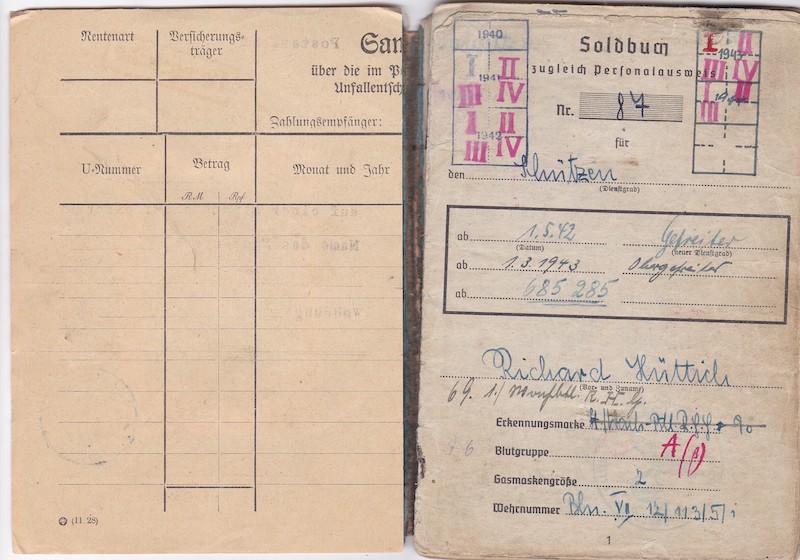 Rentenart
Versicherungs-
träger
San
über die im
Unfallentsch
Zahlungsempfänger:
U-Nummer
Betrag
Monat und Jahr
RM
Rpf
(11. 28)
1940
I II
1941
III IV
I II
1942
III IV
Soldbuch
zugleich Personalausweis
Nr. 87
für
den Schützen
(Dienstgrad)
I II
1943
III IV
I II
III
ab 1.5.42 Gefreiter
(Datum) (neuer Dienstgrad)
ab 1.3.1943 Obergefreiter
ab 685 285
Richard Hüttich
(Vor- und Zuname)
69.
Erkennungsmarke
Blutgruppe A (β)
Gasmaskengröße 2
Wehrnummer Bln. VII 12/113/5/1
1